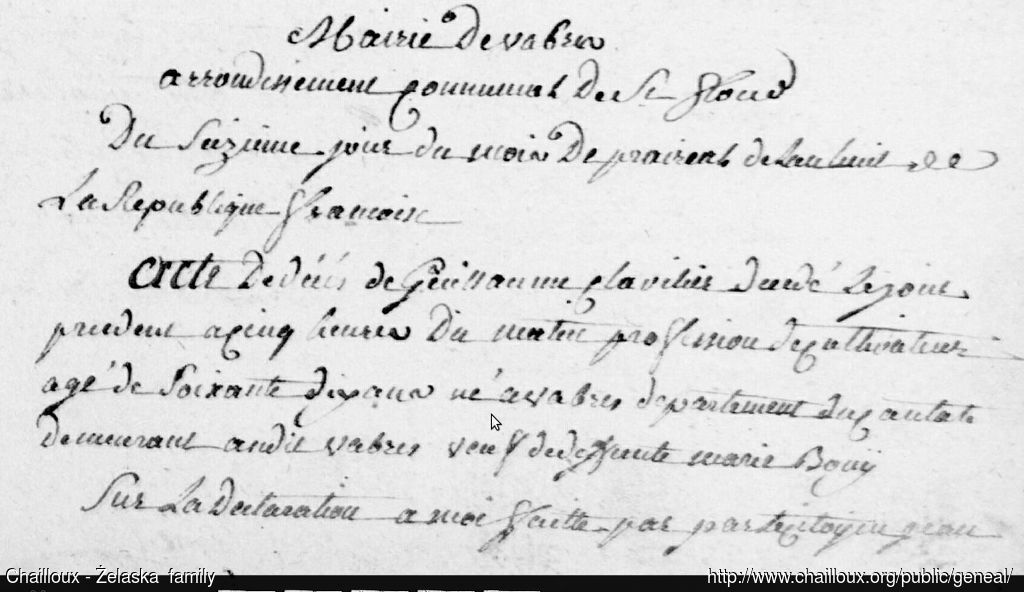 Mairie de vabres
arrondissement communal De St flour
Du Seizieme jour du mois De prairial de Lan huit de
La Republique francoise
acte De décés de Guillaume clavilier decedé le jour
precdent a cinq heures Du matin profession de cultivateur
agé de Soixante dix ans né a vabres departement du cantal
demeurant audit vabres veuf de defunte marie Bouÿ
Sur La Declaration a moi faitte par par le citoyen jean
Chailloux - Żelaska family
http://www.chailloux.org/public/geneal/